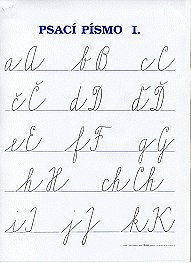 PSACÍ PÍSMO I.
a A b B c C
č Č d D ď Ď
e E f F g G
h H ch Ch
i I j J k K